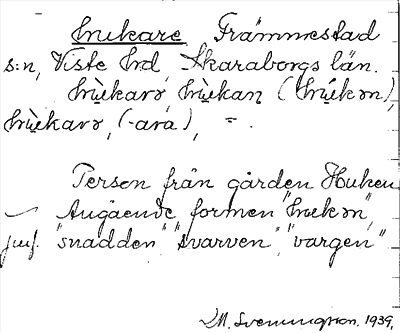 hukare Främmestad
s:n, Viste hd, Skaraborgs län.
hu̇̀karə, hu̇̀kan (hu̇́kən),
hu̇̀karə, (-ara), =.
Person från gården Huken
Angående formen "hukən",
jmf. "snadden" "svarven", "vargen"
M. Svenungson. 1939,